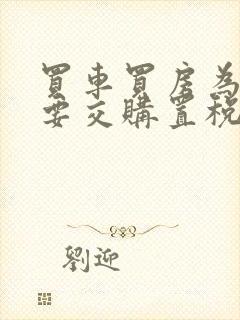 買車買房為
要交購置稅
劉迎